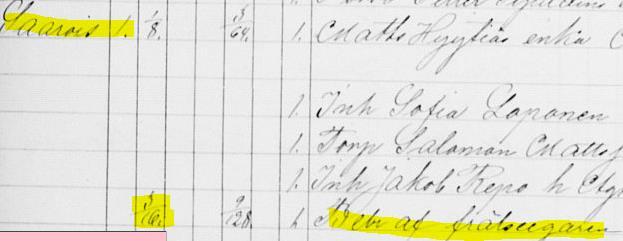 Laarois 1. 1/8. 3/64. 1. Matts Hyytiäs enka
1. Inh Sofia Loponen
1. Torp Salomon Matts
1. Inh Jakob Repo h
3/16. 9/128. 1. Bebr af frälseegaren